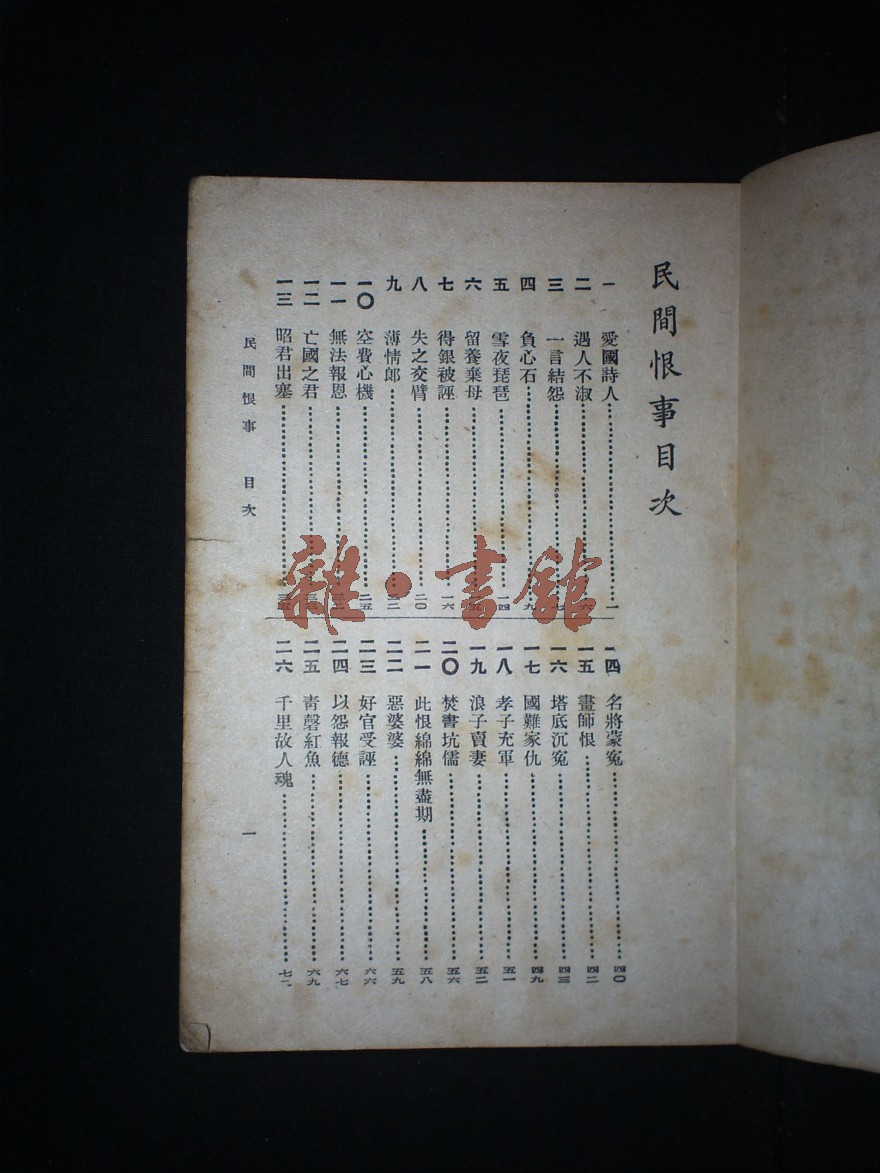 民間恨事目次
一 愛國詩人 一
二 遇人不淑 六
三 一言結怨 七
四 負心石 九
五 雪夜琵琶 一四
六 留養棄母
七 得銀被誣 一六
八 失之交臂 二〇
九 薄情郎 二二
一〇 空費心機 二五
一一 無法報恩
一二 亡國之君
一三 昭君出塞
一四 名將蒙冤 四〇
一五 畫師恨 四二
一六 塔底沉冤 四三
一七 國難家仇 四九
一八 孝子充軍 五一
一九 浪子賣妻 五二
二〇 焚書坑儒 五六
二一 此恨綿綿無盡期 五八
二二 惡婆婆 五九
二三 好官受誣 六六
二四 以怨報德 六七
二五 青磬紅魚 六九
二六 千里故人魂
民間恨事 目次 一
雜·書館